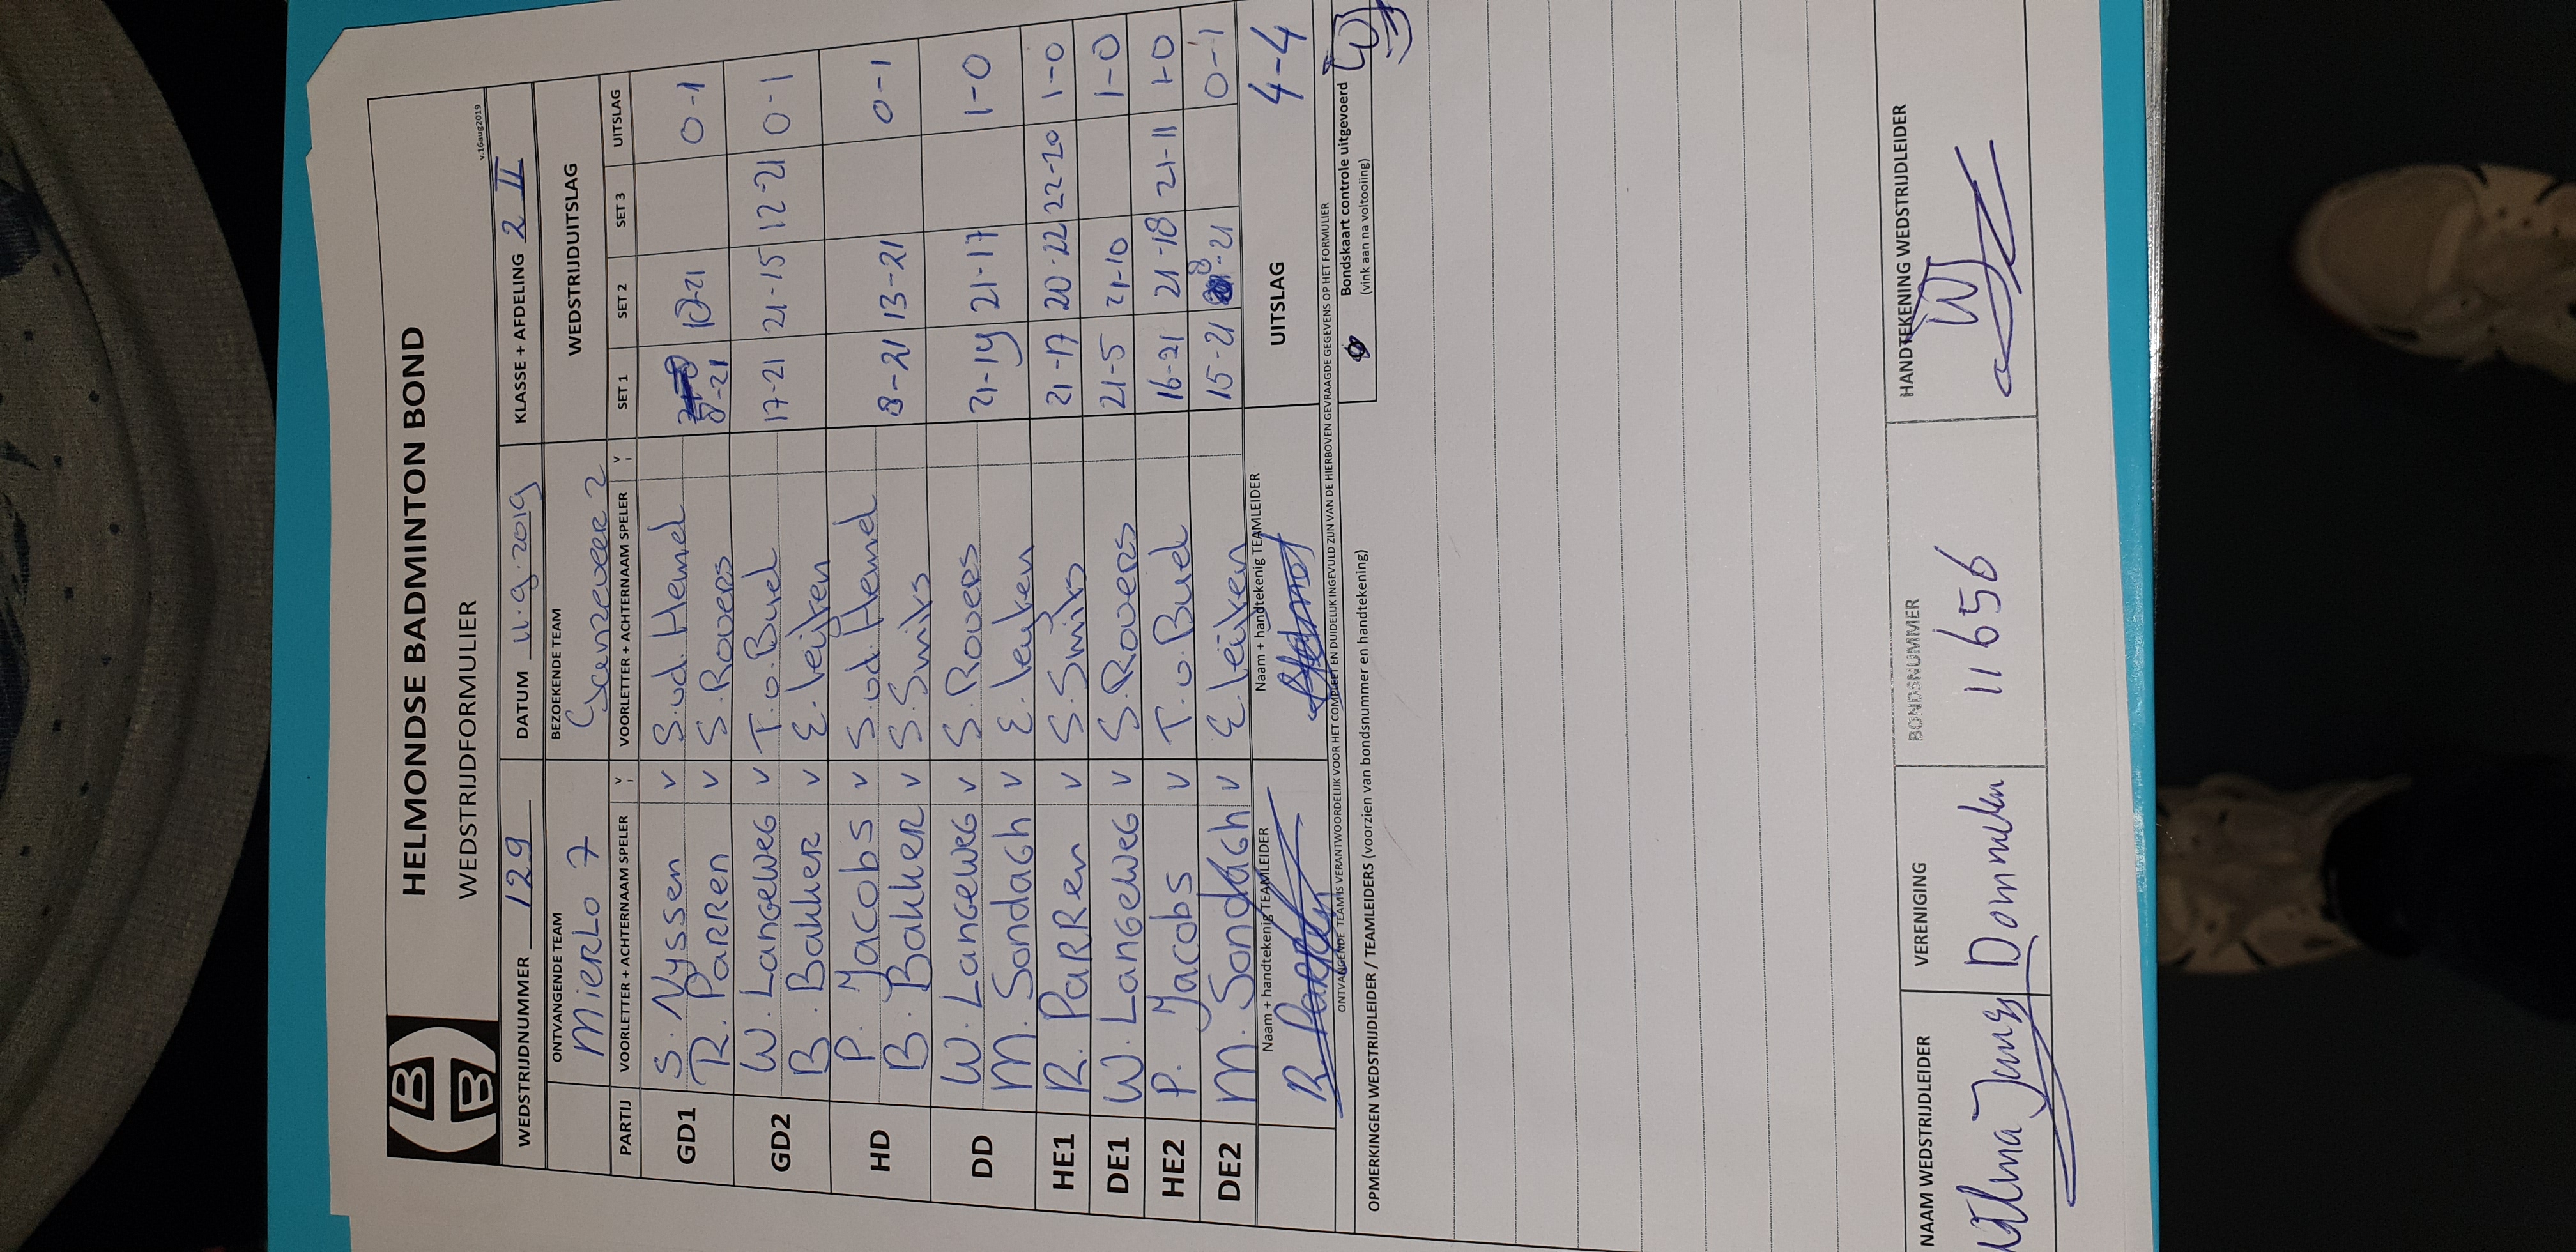 HELMONDSE BADMINTON BOND
WEDSTRIJDFORMULIER
v.16aug2019
WEDSTRIJDNUMMER 129 DATUM 11.9.2019 KLASSE + AFDELING 2 II
ONTVANGENDE TEAM BEZOEKENDE TEAM WEDSTRIJDUITSLAG
MIERLO 7 Ganzeveer 2
PARTIJ VOORLETTER + ACHTERNAAM SPELER V VOORLETTER + ACHTERNAAM SPELER V SET 1 SET 2 SET 3 UITSLAG
GD1 S. Nyssen V S.vd.Hemel 8-21 10-21 0-1
R. PARREN V S. Rovers
GD2 W. LANGEWEG V T.v.Buel 17-21 21-15 12-21 0-1
B. Bakker V E. Leijten
HD P. Jacobs V S.vd.Hemel 8-21 13-21 0-1
B. Bakker V S. Smits
DD W. LANGEWEG V S. Rovers 21-19 21-17 1-0
M. Sondagh V E. Leijten
HE1 R. PARREN V S. Smits 21-17 20-22 22-20 1-0
DE1 W. LANGEWEG V S. Rovers 21-5 21-10 1-0
HE2 P. Jacobs V T.v.Buel 16-21 21-18 21-11 1-0
DE2 M. Sondagh V E. Leijten 15-21 8-21 0-1
Naam + handtekenig TEAMLEIDER Naam + handtekenig TEAMLEIDER UITSLAG 4-4
ONTVANGENDE TEAM IS VERANTWOORDELIJK VOOR HET COMPLEET EN DUIDELIJK INGEVULD ZIJN VAN DE HIERBOVEN GEVRAAGDE GEGEVENS OP HET FORMULIER
Bondskaart controle uitgevoerd
(vink aan na voltooiing)
OPMERKINGEN WEDSTRIJDLEIDER / TEAMLEIDERS (voorzien van bondsnummer en handtekening)
NAAM WEDSTRIJDLEIDER VERENIGING BONDSNUMMER HANDTEKENING WEDSTRIJDLEIDER
Wilma 11656